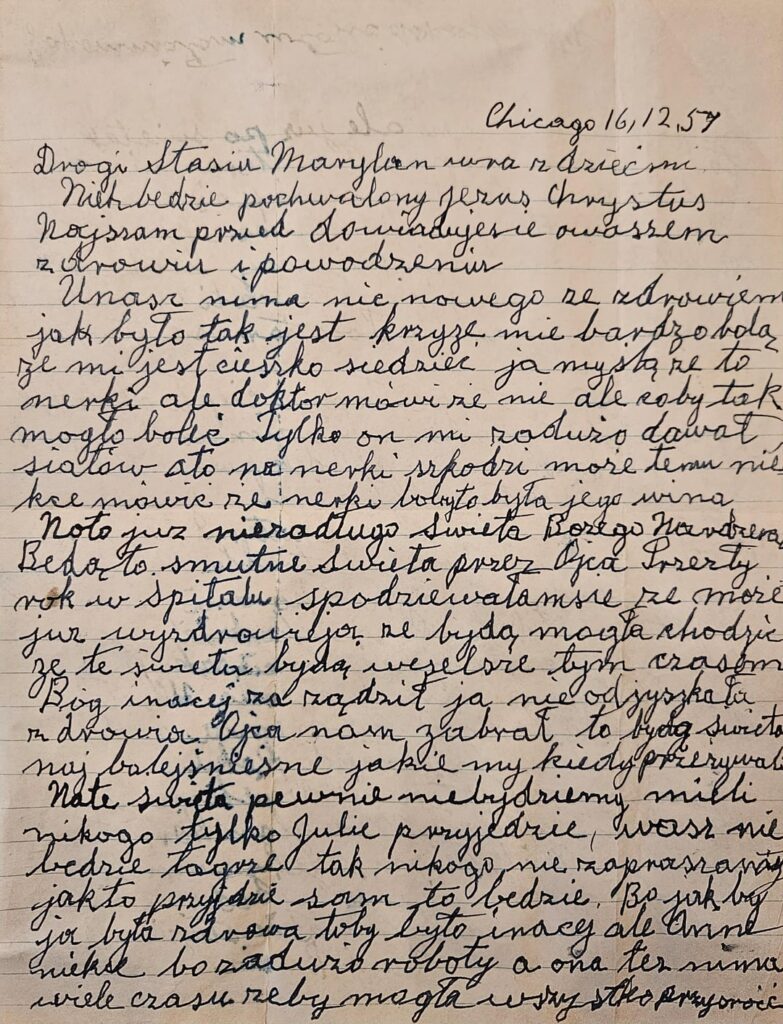 Chicago 16,12,57
Drogi Stasiu Marylan wra z dziećmi
Niek bedzie pochwalony Jezus Chrystus
Najszam przed dowiadujesie owaszem
zdrowiu i powodzeniu
Unasz nima nic nowego ze zdrowiem
jak było tak jest krzyze mie bardzo bolą
ze mi jest cieszko siedzieć ja myślą ze to
nerki ale doktor mówi ze nie ale coby tak
mogło boleć Tylko on mi zadużo dawał
siałów ato na nerki szkodzi może temu nie
kce mówić ze nerki bobyto była jego wina
Noto juz niezadługo świeta Bożego
Bedą to smutne świeta przez Ojca Przezły
rok w śpitalu spodziewałamsie ze może
juz wyzdrowieja ze bydą mogła chodzić
ze te świeta bydą weselsze tym czasem
Bóg inacej za ządził ja nie odzyszkała
zdrowia Ojca nam zabrał to bydą świeta
naj bolejśniesne jakie my kiedy przezywali
Nate świeta pewnie niebydziemy mieli
nikogo tylko Julie przyjedzie, wasz nie
bedzie tagrze tak nikogo nie zapraszamy
jakto przyjdzie sam to bedzie. Bo jak by
ja była zdrowa toby było inacej ale Anne
niekce bo zadużo roboty a ona tez nima
wiele czasu zeby mogła wszystko